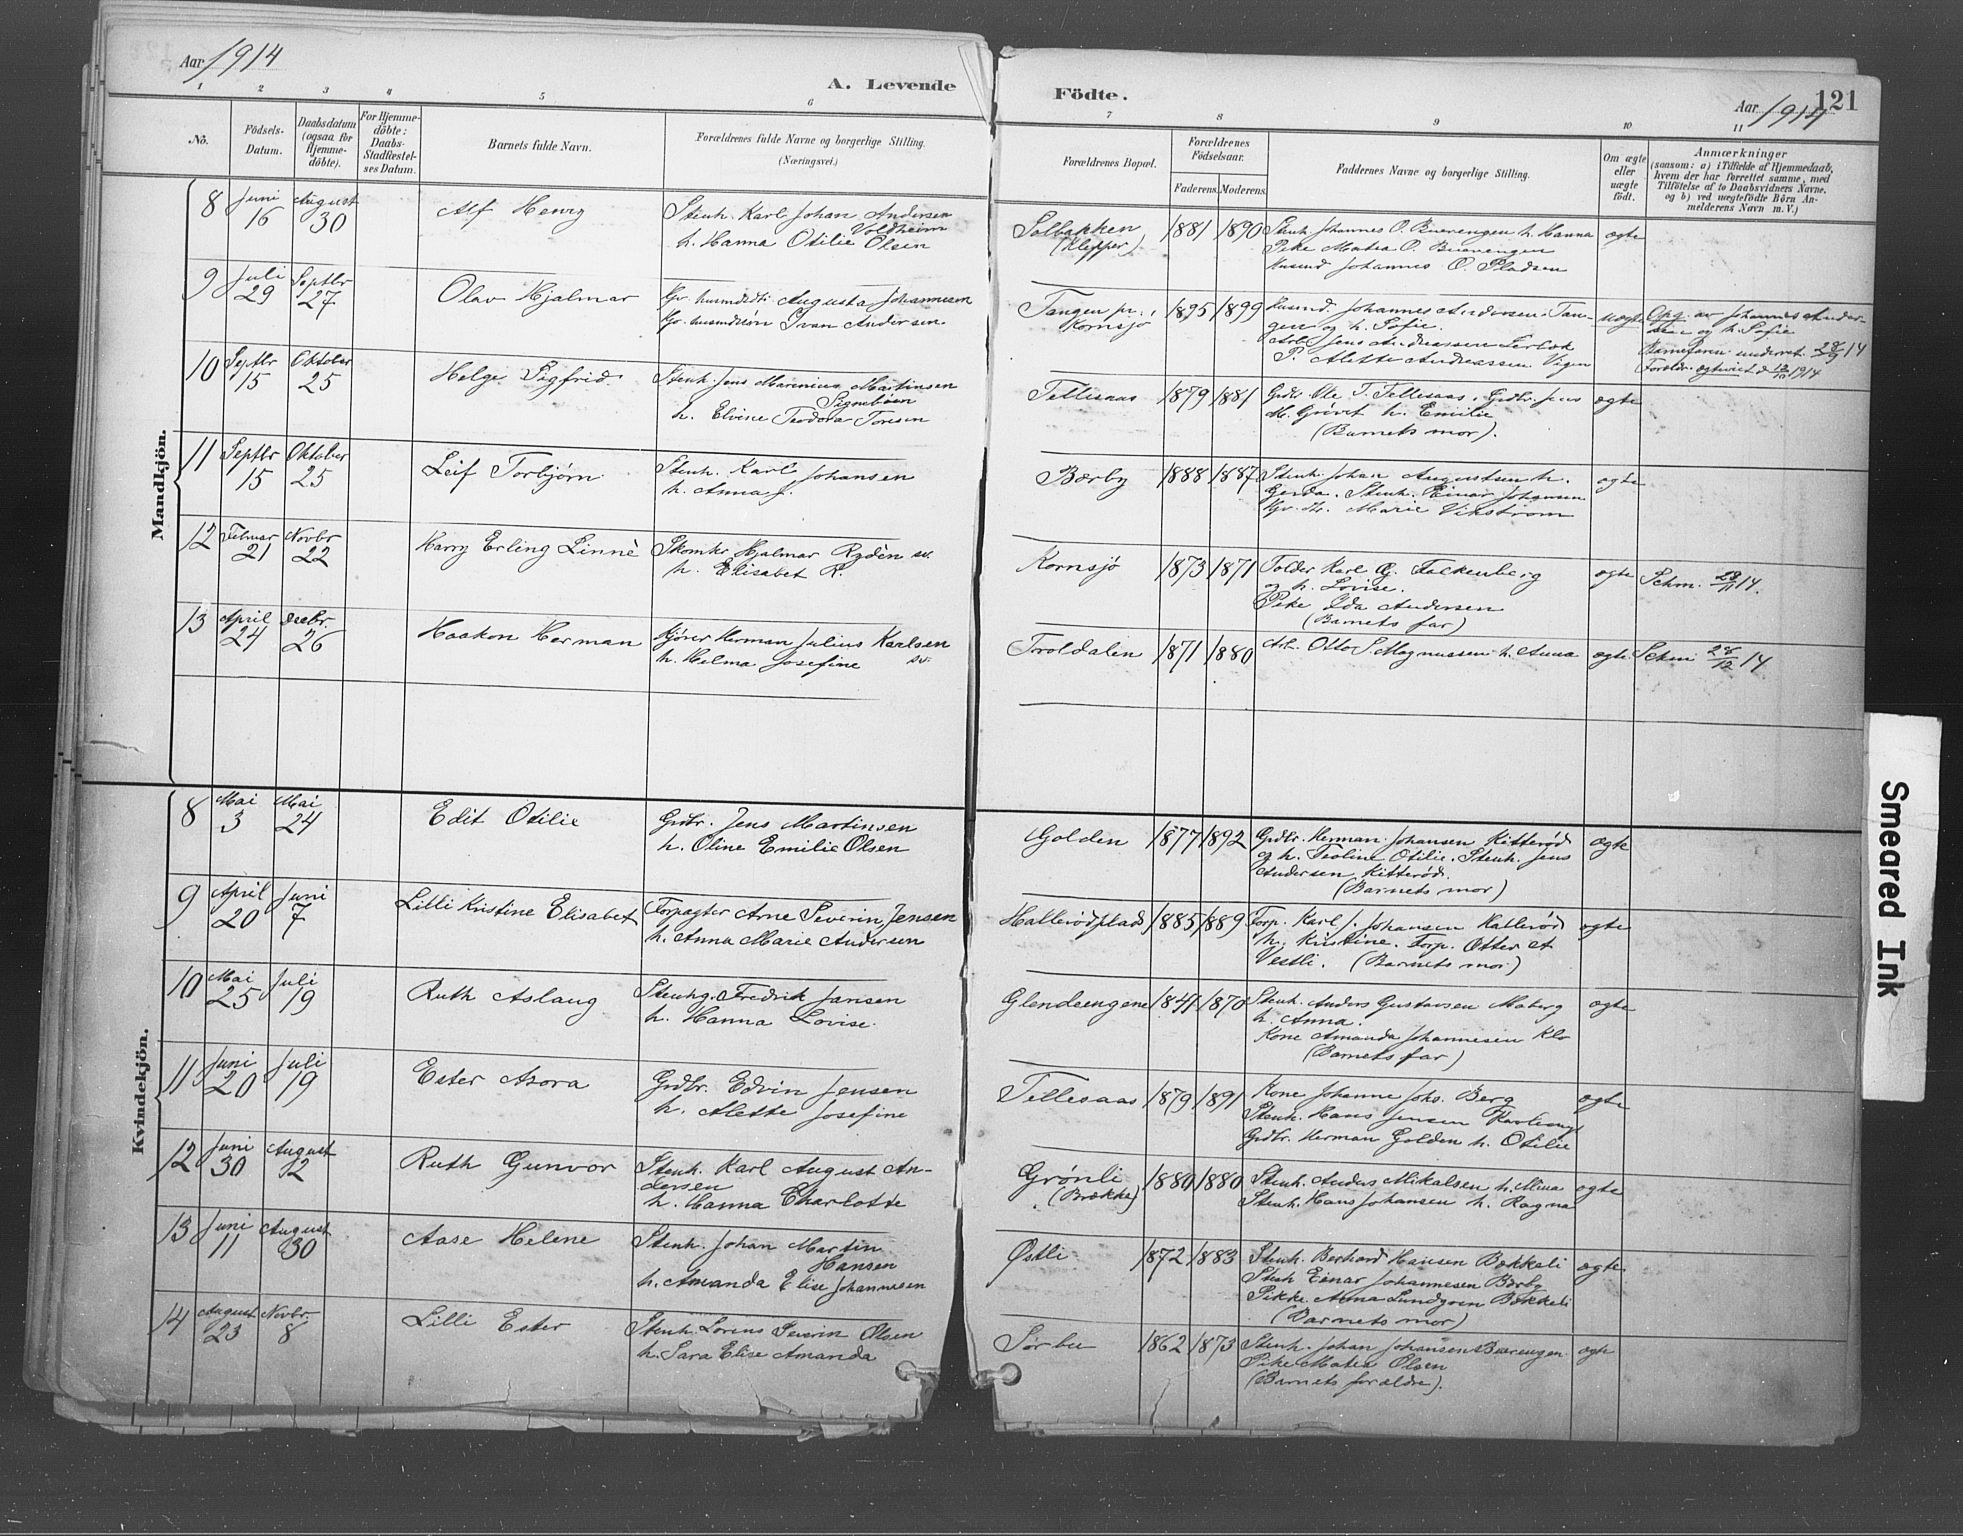 Aar 1914
A. Levende
Födte.
Aar 1914
121
1 2 3 4 5 6 7 8 9 10 11
No.
Födsels-
Datum.
Daabsdatum
(ogsaa for
Hjemme-
döbte).
For Hjemme-
döbte:
Daabs-
Stadfæstel-
ses Datum.
Barnets fulde Navn.
Forældrenes fulde Navne og borgerlige Stilling.
(Næringsvei.)
Forældrenes Bopæl.
Forældrenes
Födselsaar.
Faderens. Moderens.
Faddernes Navne og borgerlige Stilling.
Om ægte
eller
uægte
födt.
Anmærkninger
(saasom: a) i Tilfælde af Hjemmedaab,
hvem der har forrettet samme, med
Tilföielse af to Daabsvidners Navne.
og b) ved uægtefödte Börn An-
melderens Navn m. V.)
Mandkjön.
8 Juni 16 August 30 Alf Henry
Stenh. Karl Johan Andersen
Voldheim
h. Hanna Otilie Olsen
Solbakken
(Klepper)
1881 1890
Stenh. Johannes O. Buerengen h. Hanna
Pike Matea O. Buerengen
Husmd Johannes O. Pladsen
ægte
9 Juli 29 Septbr 27 Olav Hjalmar
Gv. husmdsdtr Augusta Johannesen
Gv. husmdssøn Ivan Andersen
Tangen pr.
Kornsjø
1895 1899
Husmd. Johannes Andersen Tan-
gen og h. Sofie.
Arb. Jens Andreassen Lerbæk
P. Alette Andreassen Vigen
uægte
Opg. av Johannes Ander-
sen og h. Sofie
Barnefaren underret. 28/9 14
Foræld. egteviet d 1914
10 Septbr 15 Oktober 25 Helge Sigfrid
Stenh. Jens Marenius Martinsen
Signebøen
h. Elvine Teodora Toresen
Tellesaas
1879 1881
Grdbr. Ole T. Tellesaas. Grdbr. Jens
M. Grövit h. Emilie
(Barnets mor).
ægte
11 Septbr 15 Oktober 25 Leif Torbjørn
Stenh. Karl Johansen
h. Anna J.
Bærby
1888 1887
Stenh. Johan Augustsen h.
Gerda. Stenh. Einar Johansen
Gv. Marie Vikstrøm
ægte
12 Februar 21 Novbr 22 Harry Erling Linnè
Skomkr Hjalmar Rydèn sv.
h. Elisabet R.
Kornsjø
1873 1871
Tolder Karl G. Falckenberg
og h. Lovise.
Pike Ida Andersen
(Barnets far)
ægte
Schm. 28/11 14.
13 April 24 Decbr. 26 Haakon Herman
Kjører Herman Julius Karlsen
h. Helma Josefine sv.
Troldalen
1871 1880
Arb. Otto S Magnussen h. Anna
ægte
Schm 28/12 14
Kvindekjön.
8 Mai 3 Mai 24 Edit Otilie
Grdbr. Jens Martinsen
h. Oline Emilie Olsen
Golden
1877 1892
Grdbr. Herman Johansen Kitterød
og h. Teoline Otilie. Stenh. Jens
Andersen Kitterød.
(Barnets mor)
ægte
9 April 20 Juni 7 Lilli Kristine Elisabet
Forpagter Arne Severin Jensen
h. Anna Marie Andersen
Hallerødplads
1885 1889
Forp. Karl J. Johansen Hallerød
h. Kristine. Forp. Otter A
Vestli. (Barnets mor)
ægte
10 Mai 25 Juli 19 Ruth Aslaug
Stenhg. Fredrik Jansen
h. Hanna Lovise.
Glendeengene
1870
Stenh. Anders Gustavsen Moberg
h. Anna.
Kone Amanda Johannesen Klo
(Barnets far)
ægte
11 Juni 20 Juli 19 Ester Asora
Grdbr. Edvin Jensen
h. Alette Josefine
Tellesaas
1879 1891
Kone Johanne Johs. Berg
Stenh. Hans Jensen
Grdbr. Herman Golden h. Otilie
ægte
12 Juni 30 August 12 Ruth Gunvor
Stenh. Karl August An-
dersen
h. Hanna Charlotte
Grønli
(Brække)
1880 1880
Stenh. Anders Mikalsen h. Mina
Stenh. Hans Johansen h. Ragna
ægte
13 Juni 11 August 30 Aase Helene
Stenh. Johan Martin
Hansen
h. Amanda Elise Johannesen
Østli
1872 1883
Stenh. Berhard Hansen Bækkeli
Stenh Einar Johannesen Bærby
Pikke Anna Lundgren Bækkeli
(Barnets mor)
ægte
14 August 23 Novbr. 8 Lilli Ester
Stenh. Lorens Severin Olsen
h. Sara Elise Amanda
Sørbu
1862 1873
Stenh. Johan Johansen Buerengen
Pike Matea Olsen
(Barnets forældre).
ægte
Smeared Ink